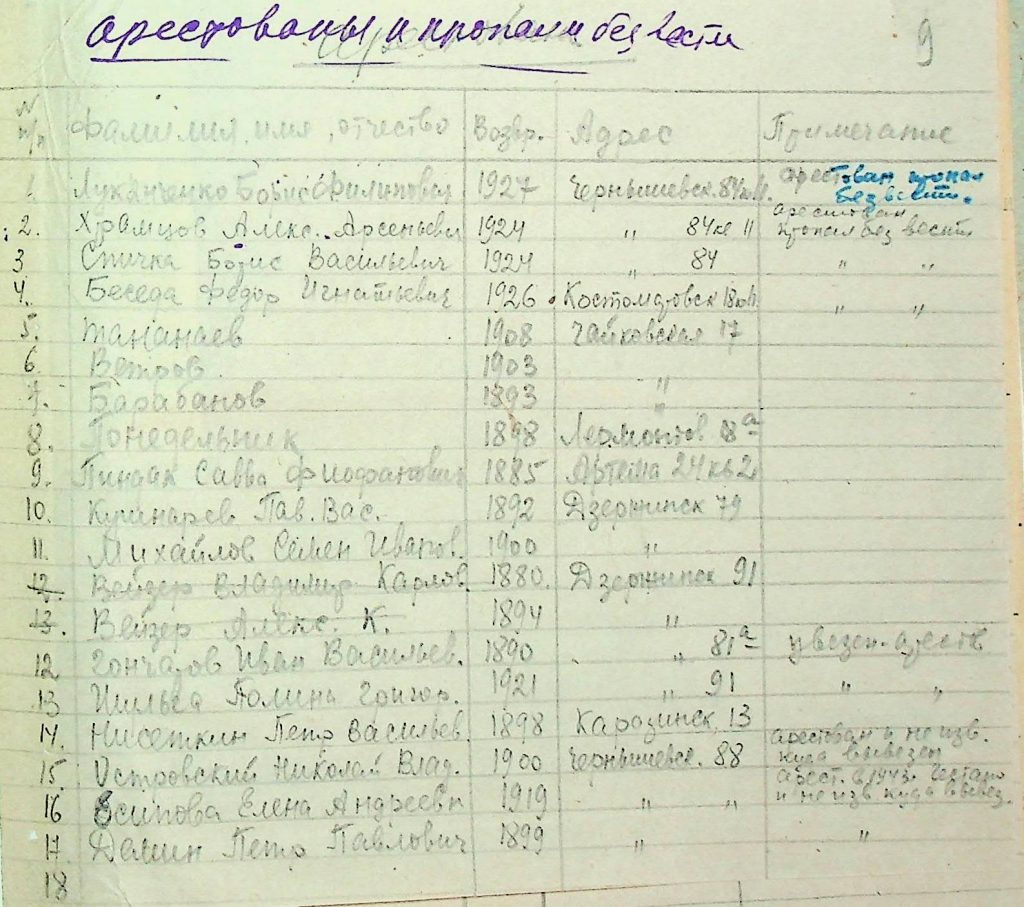 арестованы и пропали без вести
9
N п/п Фамилия, имя, отчество Возвр. Адрес Примечание
1 Луканченко Борис Филипович 1927 Чернышевск. 84 арестован пропал без вести.
2. Храмцов Алекс. Арсеньевич 1924 " 84 кв 11 арестован пропал без вести
3 Спичка Борис Васильевич 1924 " 84 " "
4. Беседа Федор Игнатьевич 1926 Костомаровск " "
5. Тананаев 1908 Чайковская 17
6. Ветров 1903 "
7. Барабанов 1893 "
8. Понедельник 1898 Лермонтов 8а
9. Савва Фиофанович 1885 Артема 24 кв 2
10. Кушнарев Пав. Вас. 1892 Дзержинск 79
11. Михайлов Семен Иванов. 1900 "
12. Вейзер Владимир Карлов. 1880. Дзержинск 91
13. Вейзер Алекс. К. 1894 "
12 Гончаров Иван Васильев. 1890 " 81а увезен арестов
13 Полина Григор. 1921 " 91 " "
14. Нисеткин Петр Васильев. 1898 Каразинск. 13 арестован и не изв.
куда вывезен
15. Островский Николай Влад. 1900 Чернышевск. 88 арест. в 1943. Гестапо
и не изв куда вывез.
16 Есипова Елена Андреевн 1919 " "
17. Демин Петр Павлович 1899 " "
18